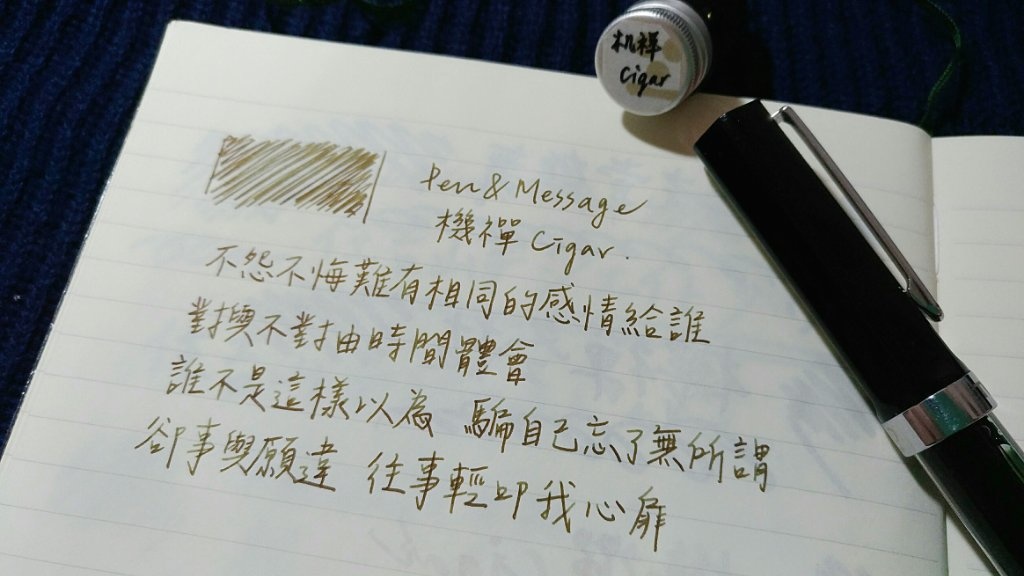 机禅
Cigar
Pen & Message
機禪 Cigar.
不怨不悔難有相同的感情給誰
對與不對由時間體會
誰不是這樣以為 騙自己忘了無所謂
卻事與願違 往事輕叩我心扉